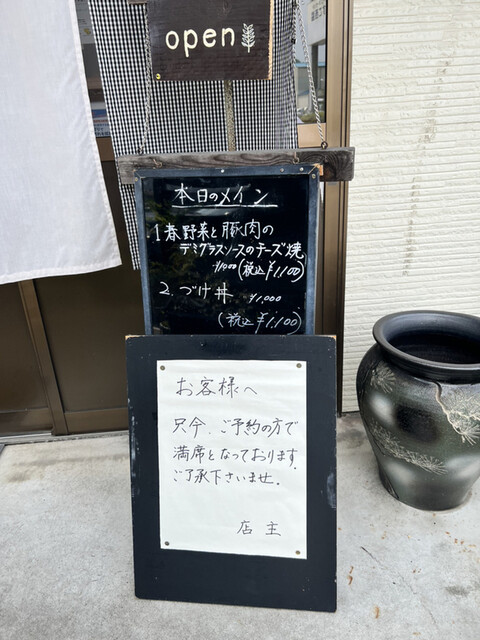 open
本日のメイン
1春野菜と豚肉の
デミグラスソースのチーズ焼
¥1,000(税込¥1,100)
2.づけ丼 ¥1,000
(税込¥1,100)
お客様へ
只今、ご予約の方で
満席となっております。
ご了承下さいませ。
店主